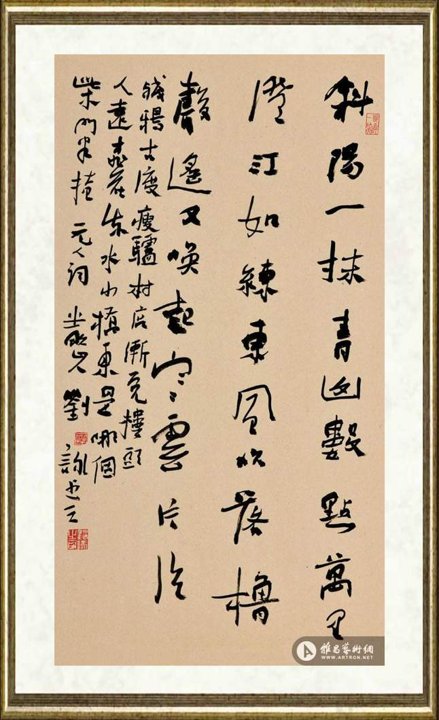 斜陽一抹青山數點萬里
澄江如練東風吹落櫓
聲遙又喚起寒雲片片
殘鴉古渡瘦驢村店漸覺樓頭
人遠桃花流水小橋東是哪個
柴門半掩 元人詞 劉
雅昌藝術網
WWW.ARTRON.NET